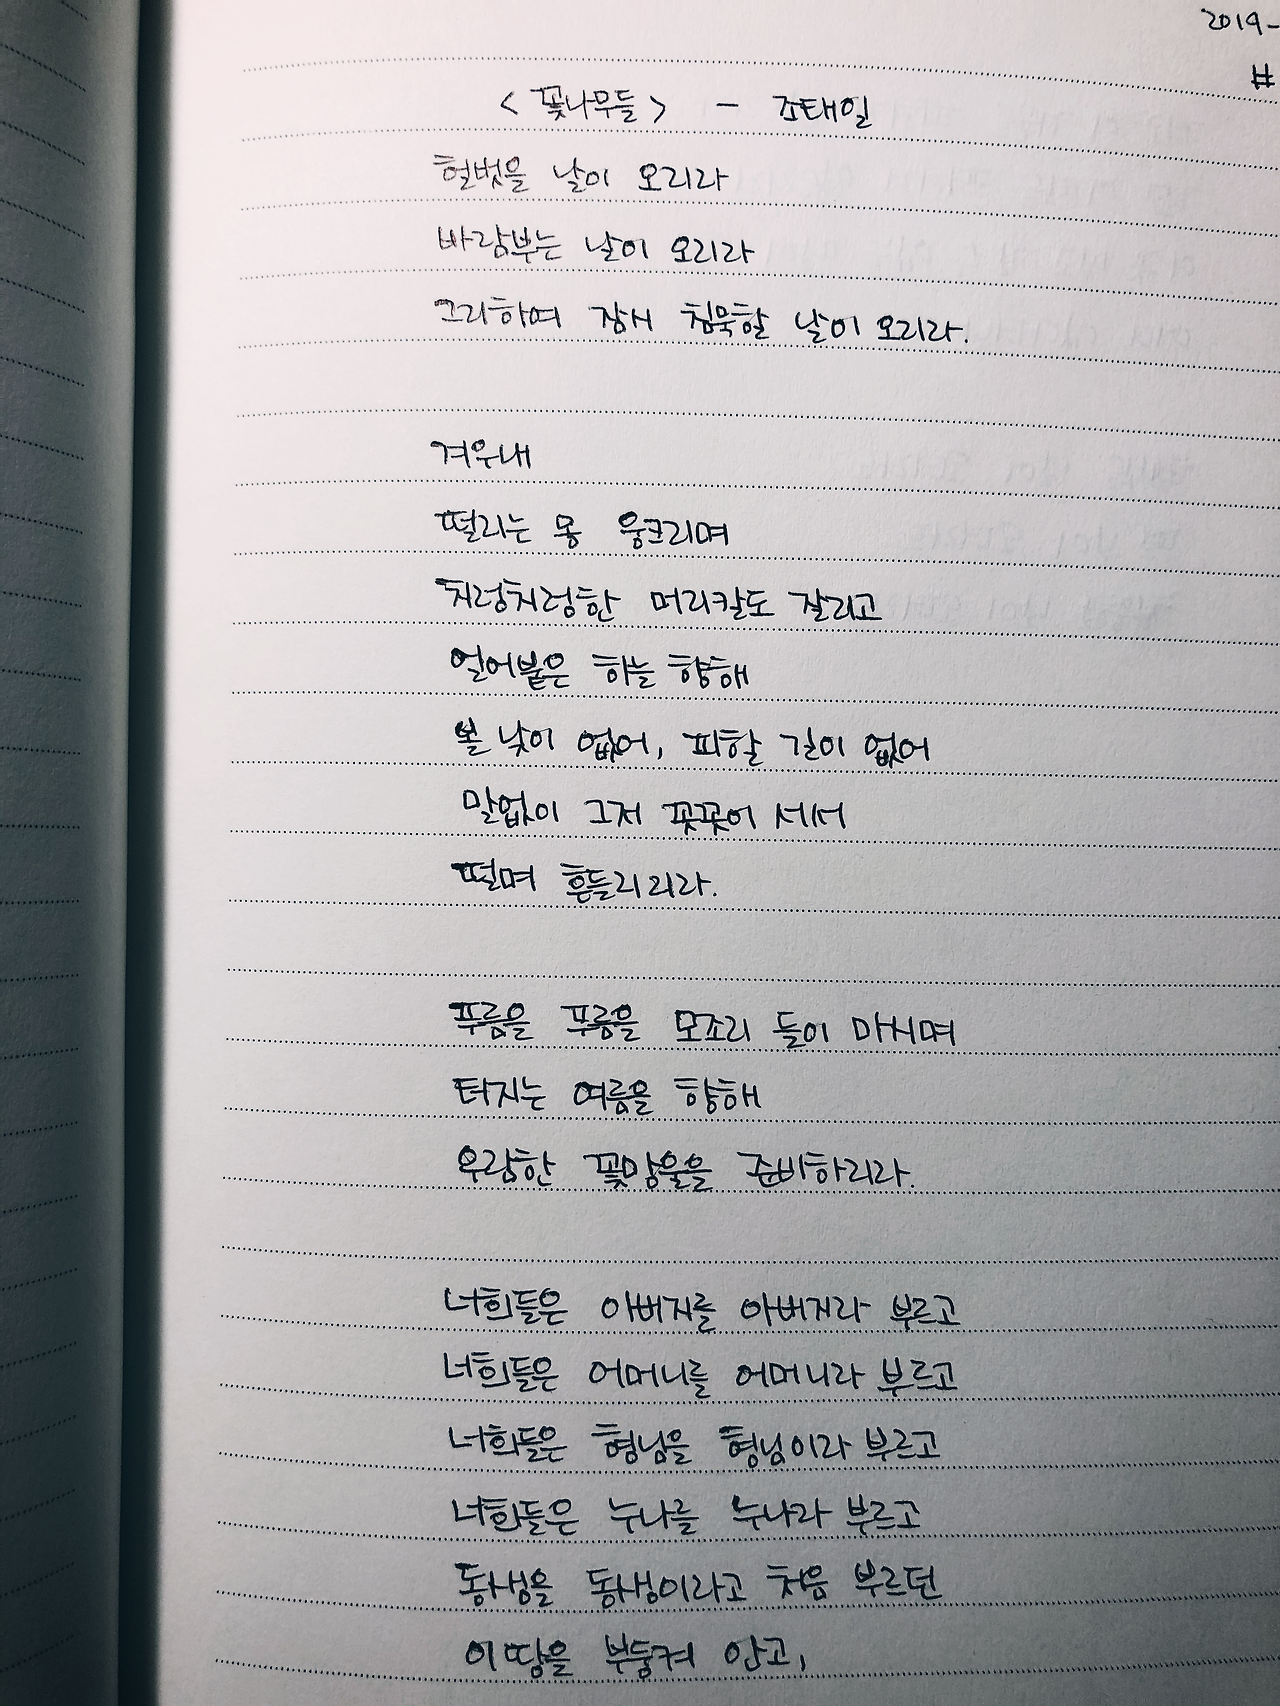 2019-
#
<꽃나무들> - 조태일
헐벗을 날이 오리라
바람부는 날이 오리라
그리하여 잠시 침묵할 날이 오리라.
겨우내
떨리는 몸 웅크리며
치렁치렁한 머리칼도 잘리고
얼어붙은 하늘 향해
볼 낯이 없어, 피할 길이 없어
말없이 그저 꼿꼿이 서서
떨며 흔들리리라.
푸름을 푸름을 모조리 들이 마시며
터지는 여름을 향해
우람한 꽃망울을 준비하리라.
너희들은 아버지를 아버지라 부르고
너희들은 어머니를 어머니라 부르고
너희들은 형님을 형님이라 부르고
너희들은 누나를 누나라 부르고
동생을 동생이라고 처음 부르던
이 땅을 부둥켜 안고,